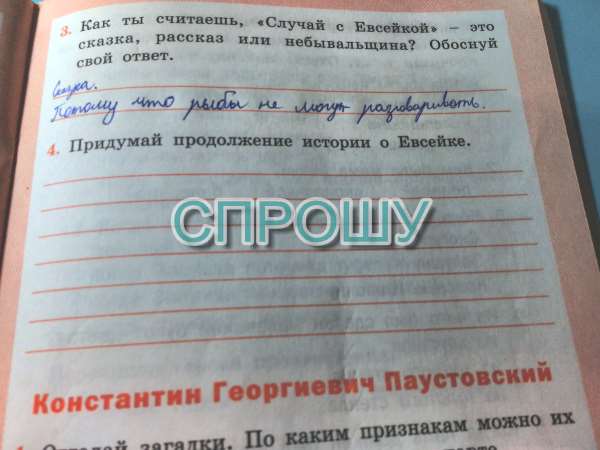 3. Как ты считаешь, «Случай с Евсейкой» – это
сказка, рассказ или небывальщина? Обоснуй
свой ответ.
Сказка.
Потому что рыбы не могут разговаривать.
4. Придумай продолжение истории о Евсейке.
СПРОШУ
Константин Георгиевич Паустовский
загадки. По каким признакам можно их